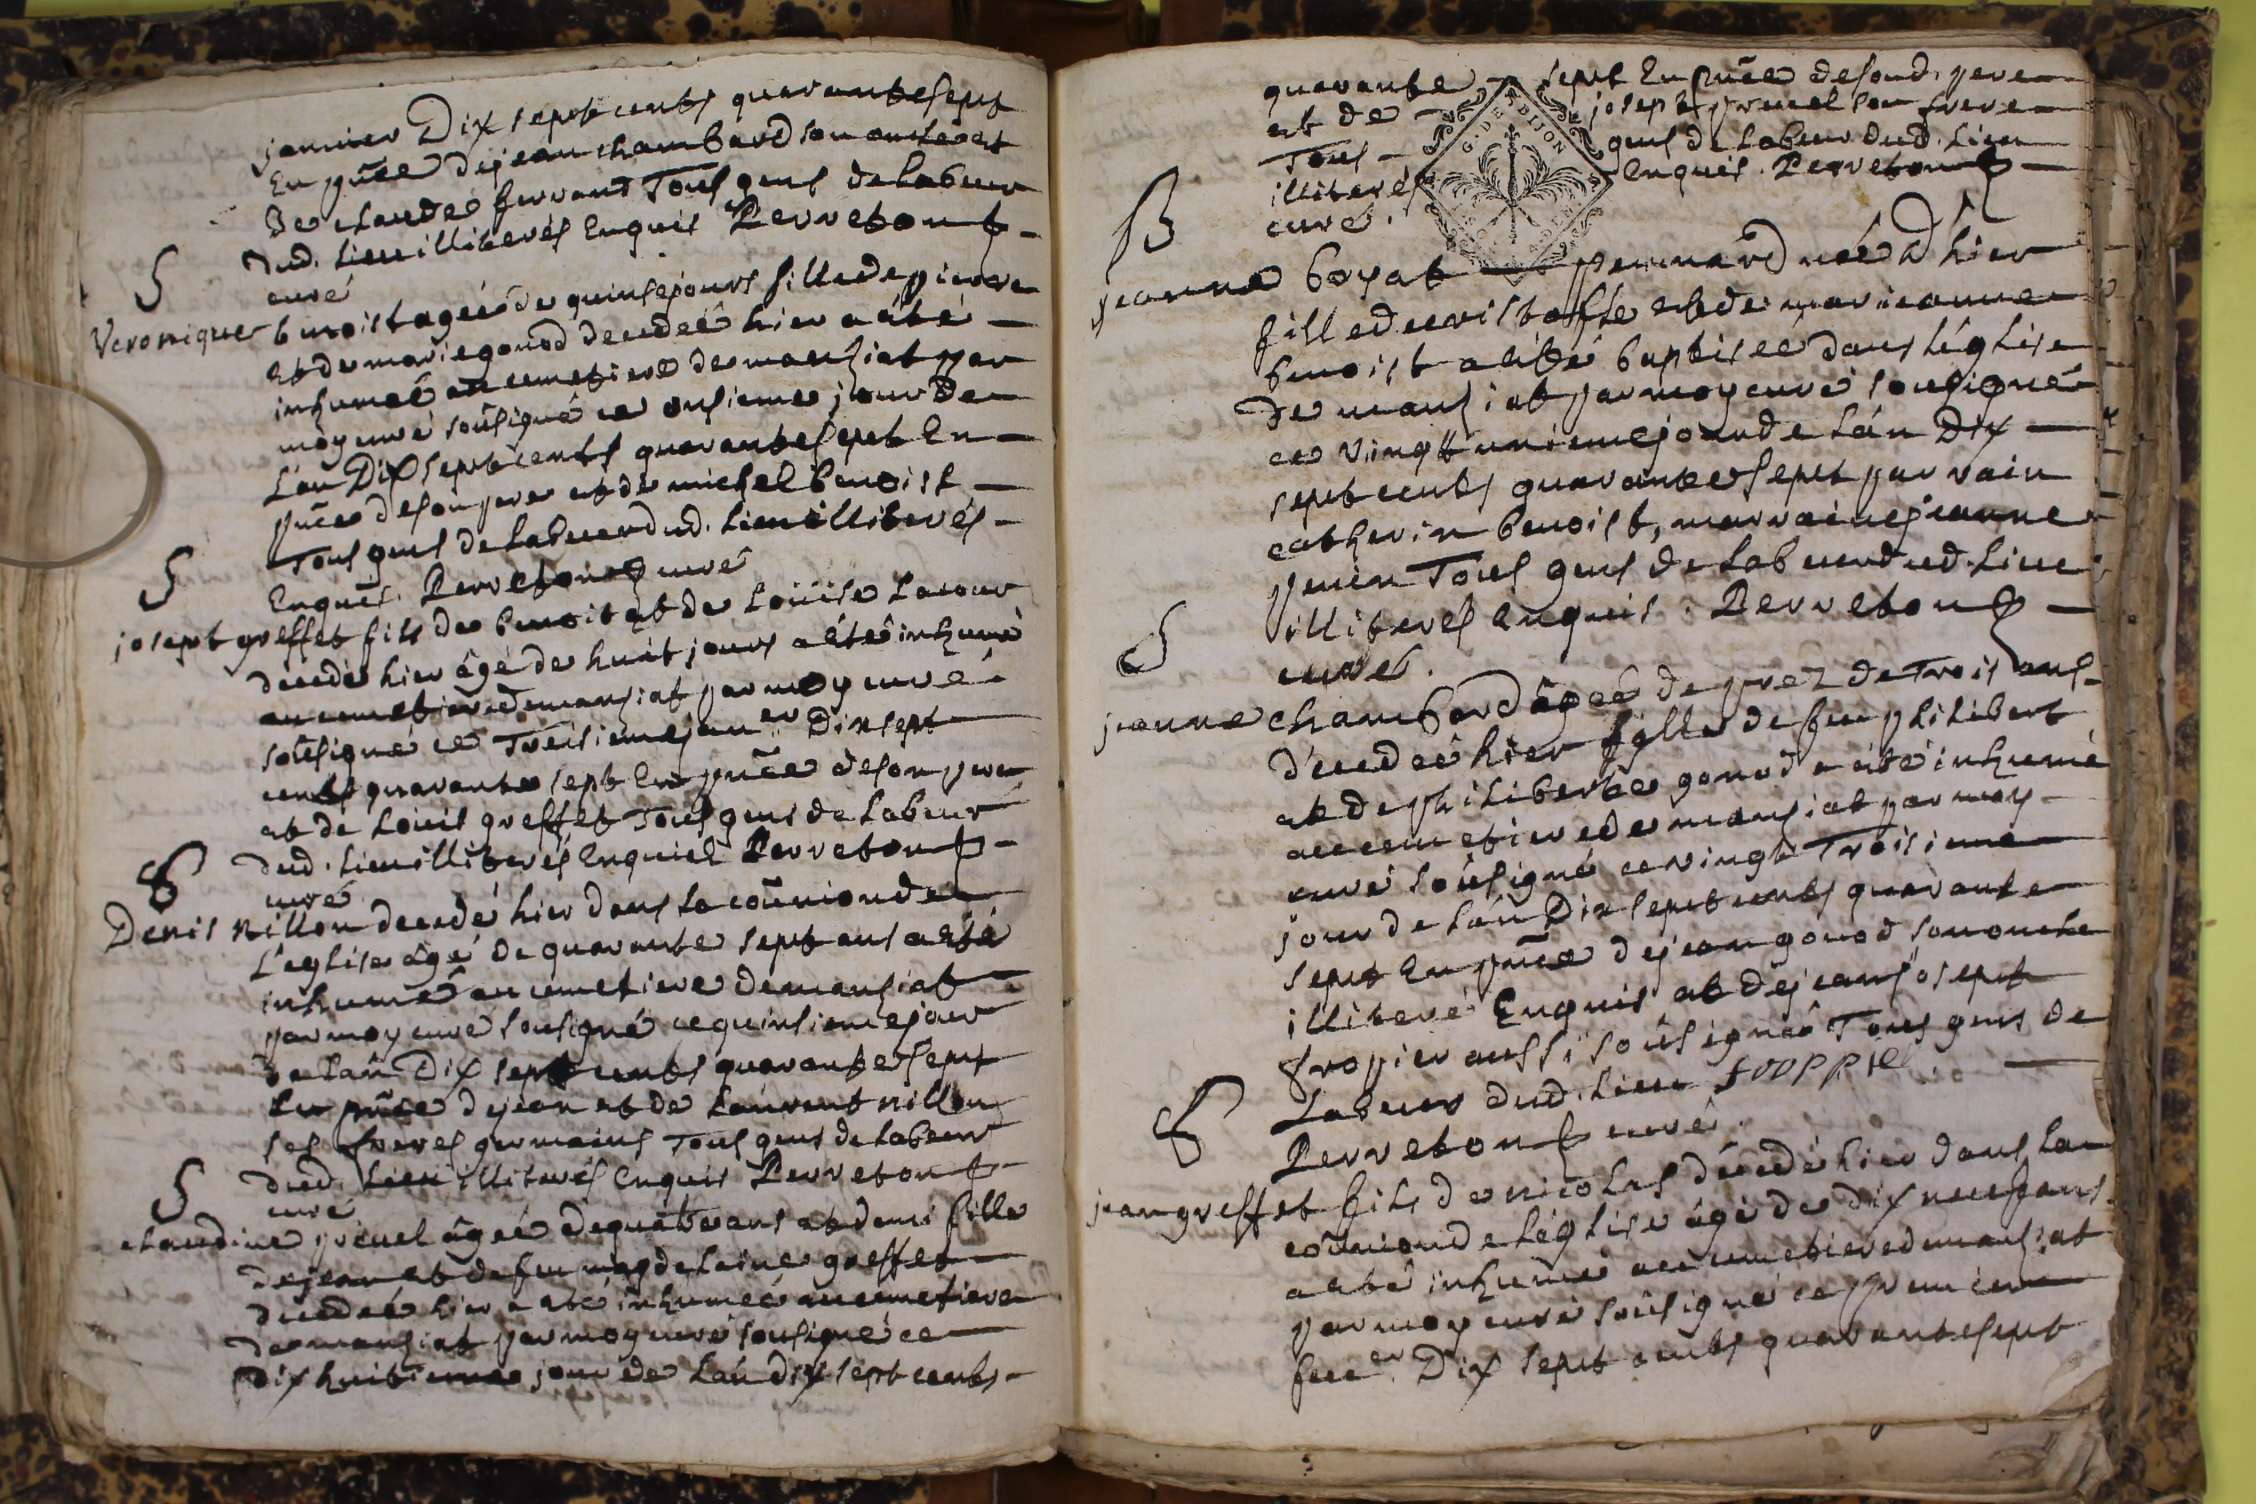 janvier Dix sept cents quarante sept
En pñce de jean chambard son oncle et
De claude ferrand Tous gens de labeur
dud. lieu illiterés Enquis Perreton
curé
S
Veronique benoist agée de quinse jours fille de pierre
et de marie gonod decedée hier a été
inhumée au cemetiere de mansiat par
moy curé soûsigné ce onsieme jour De
l'an Dix sept cents quarante sept En
pñce de son pere et de michel benoist
Tous gens de labeur dud. lieu illiterés
Enquis. Perreton curé
S
josept greffet fils de benoit et de Loüise Lacour
decedé hier âgé de huit jours a été inhumé
au cemetiere de mansiat par moy curé
soûsigné ce Treisieme jan.er Dix sept
cents quarante sept En pñce de son pere
et de Loüis greffet Tous gens de labeur
dud. lieu illiterés Enquis Perreton
curé
Denis nillon decedé hier dans la com̃union de
L'eglise âgé de quarante sept ans a été
inhumé au cemetiere de mansiat
par moy curé sousigné ce quinsieme jour
de l'an Dix sept cents quarante sept
En pñce de jean et de Laurent nillon
ses freres germains Tous gens de labeur
dud. Lieu illiterés Enquis Perreton
curé
S
claudine âgée de quatre ans et demi fille
de jean et de feu magdelaine greffet
decedée hier a été inhumée au cemetiere
de mansiat par moy curé sousigné ce
Dix huitieme jour de l'an dix sept cents
quarante sept En pñce de sond. pere
et de josept son frere
Tous gens de labeur dud. Lieu
illiterés Enquis. Perreton
curé.
G. DE DIJON
B
jeanne boyat née D'hier
fille de cristofle et de marie jeanne
benoist a été baptisée dans l'église
De mansiat par moy curé sousigné
ce vingt unieme jour de l'an Dix
sept cents quarante sept parrain
catherin benoist, marraine jeanne
Tous gens de labeur dud. Lieu
illiterés Enquis. Perreton
curé.
S
jeanne chambard âgée de prez de Trois ans
décedée hier fille de feu philibert
et de philiberte gonod a été inhumée
au cemetiere de mansiat par moy
curé soûsigné ce vingt Troisieme
jour de l'an Dix sept cents quarante
sept En pñce de jean gonod son oncle
illiteré Enquis et de jean josept
froppier aussi soûsigné Tous gens de
Labeur dud. Lieu froppie
Perreton curé.
jean greffet fils de nicolas décedé hier dans la
com̃union de l'église âgé de dix neuf ans
a été inhumé au cemetiere de mansiat
par moy curé soûsigné ce premier
fev.er Dix sept cents quarante sept